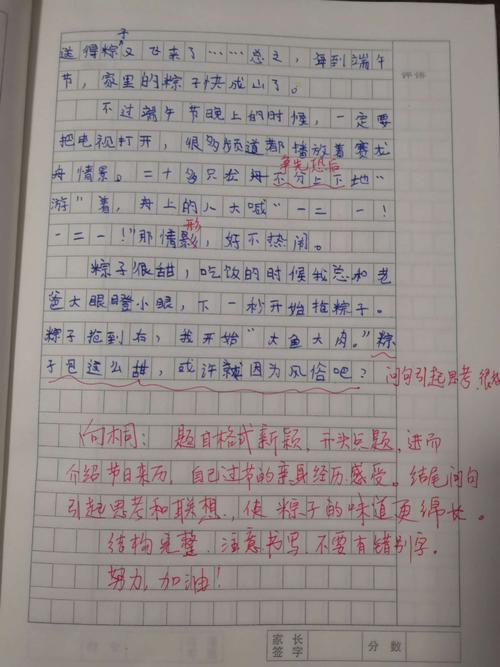 子
送得粽又飞来了……总之，每到端午
节，家里的粽子快成山了。
评语
不过端午节晚上的时候，一定要
把电视打开，很多频道都播放着赛龙
争先恐后
舟情景。二十多只龙舟不分上下地“
游”着，舟上的人大喊“一二一！
形
一二一！”那情影，好不热闹。
粽子很甜，吃饭的时候我总和老
爸大眼瞪小眼，下一秒开始抢粽子。
粽子抢到后，我开始“大鱼大肉。”粽
子包这么甜，或许就因为风俗吧？
问句引起思考，很好
向桐：题目格式新颖，开头点题，进而
介绍节日来历，自己过节的亲身经历感受。结尾问句
引起思考和联想，使粽子的味道更绵长。
结构完整，注意书写，不要有错别字。
努力，加油！
家长
签字
分数